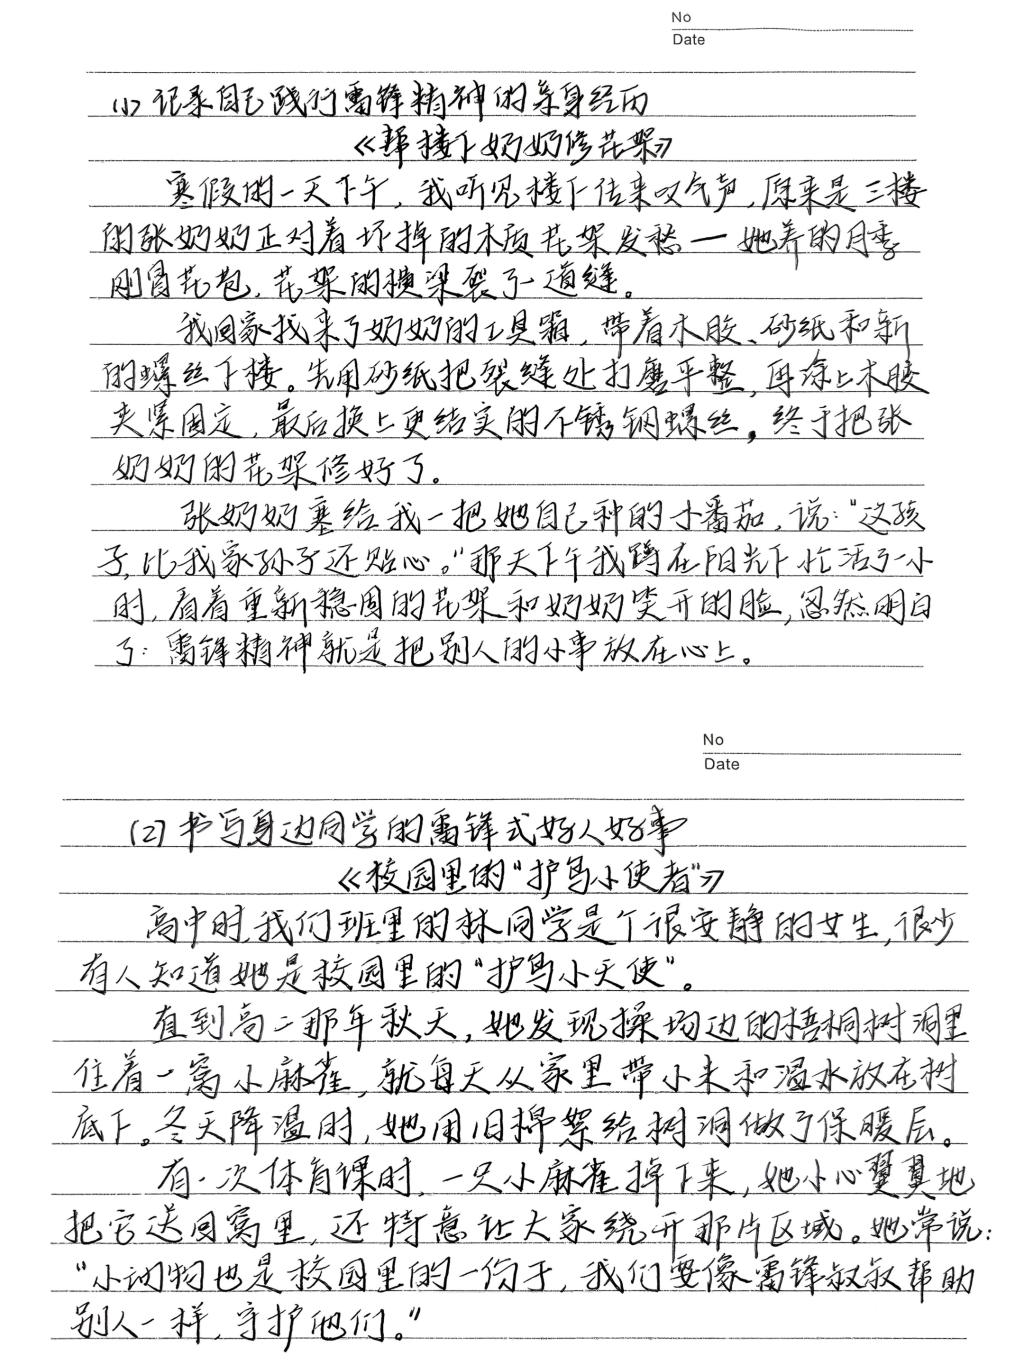 No
Date
(1) 记录自己践行雷锋精神的亲身经历
《帮楼下奶奶修花架》
寒假的一天下午，我听见楼下传来叹气声，原来是三楼
的张奶奶正对着坏掉的木质花架发愁—她养的月季
刚冒花苞，花架的横梁裂了一道缝。
我回家找来了奶奶的工具箱，带着木胶、砂纸和新
的螺丝下楼。先用砂纸把裂缝处打磨平整，再涂上木胶
夹紧固定，最后换上更结实的不锈钢螺丝，终于把张
奶奶的花架修好了。
张奶奶塞给我一把她自己种的小番茄，说：“这孩
子，比我家孙子还贴心。”那天下午我蹲在阳光下忙活了一小
时，看着重新稳固的花架和奶奶笑开的脸，忽然明白
了：雷锋精神就是把别人的小事放在心上。
No
Date
(2) 书写身边同学的雷锋式好人好事
《校园里的“护鸟小使者”》
高中时，我们班里的林同学是个很安静的女生，很少
有人知道她是校园里的“护鸟小天使”。
直到高二那年秋天，她发现操场边的梧桐树洞里
住着一窝小麻雀，就每天从家里带小米和温水放在树
底下。冬天降温时，她用旧棉絮给树洞做了保暖层。
有一次体育课时，一只小麻雀掉下来，她小心翼翼地
把它送回窝里，还特意让大家绕开那片区域。她常说：
“小动物也是校园里的一份子，我们要像雷锋叔叔帮助
别人一样，守护他们。”